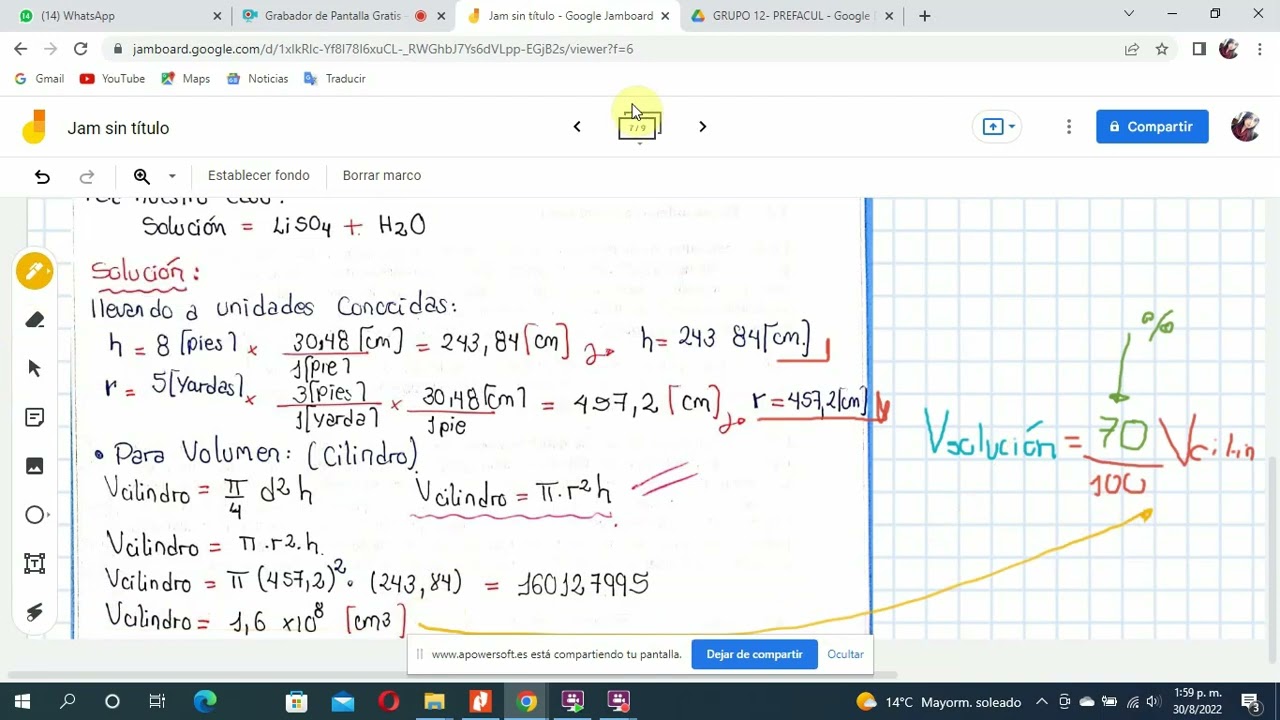 (14) WhatsApp
Grabador de Pantalla Gratis -
Jam sin título - Google Jamboard
GRUPO 12- PREFACUL - Google
jamboard.google.com/d/1xlkRlc-Yf8l78l6xuCL-_RWGhbJ7Ys6dVLpp-EGjB2s/viewer?f=6
Gmail
YouTube
Maps
Noticias
Traducir
Jam sin título
Compartir
Establecer fondo
Borrar marco
Solución = LiSO4 + H2O
Solución:
llevando a unidades Conocidas:
h = 8 [pies] × 30,48 [cm] / 1[pie] = 243,84 [cm] h= 243 84[cm]
r = 5[Yardas] × 3[pies] / 1[yarda] × 30,48 [cm] / 1pie = 457,2 [cm] r=457,2[cm]
• Para Volumen: (Cilindro)
Vcilindro = π/4 d2 h Vcilindro = π.r2h
Vcilindro = π.r2.h
Vcilindro = π(457,2)2. (243,84) = 160127995
Vcilindro = 1,6 ×108 [cm3]
%
Vsolución = 70/100 Vcilin
www.apowersoft.es está compartiendo tu pantalla.
Dejar de compartir
Ocultar
14°C Mayorm. soleado
1:59 p. m.
30/8/2022
3